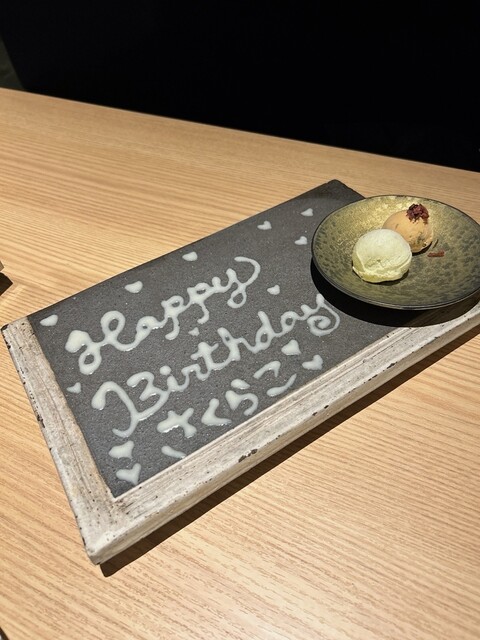 Happy
Birthday
さくらこ